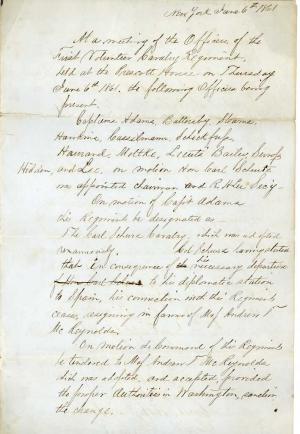 New York June 6th 1861
At a meeting of the Officers of the
First Volunteer Cavalry Regiment,
held at the Prescott House on Thursday
June 6th 1861, the following Officers being
present.
Captains Adams, Battersby, Stearns,
Hawkins,
Harrand, Moltke, Lieuts Bailey,
Hidden, and on motion Hon Carl Schurz
was appointed chairman and Secy
On motion of Capt Adams
this Regiment be designated as
The Carl Schurz Cavalry, which was adopted
unanimously. Carl Schurz
that in consequence of his necessary departure
to his diplomatic station
to Spain, his connection with the Regiment
ceases, resigning in favor of Maj Andrew T
McReynolds.
On motion the Command of the Regiment
be tendered to Maj Andrew T McReynolds
which was adopted, and accepted, provided
the proper Authorities in Washington, sanction
the change.